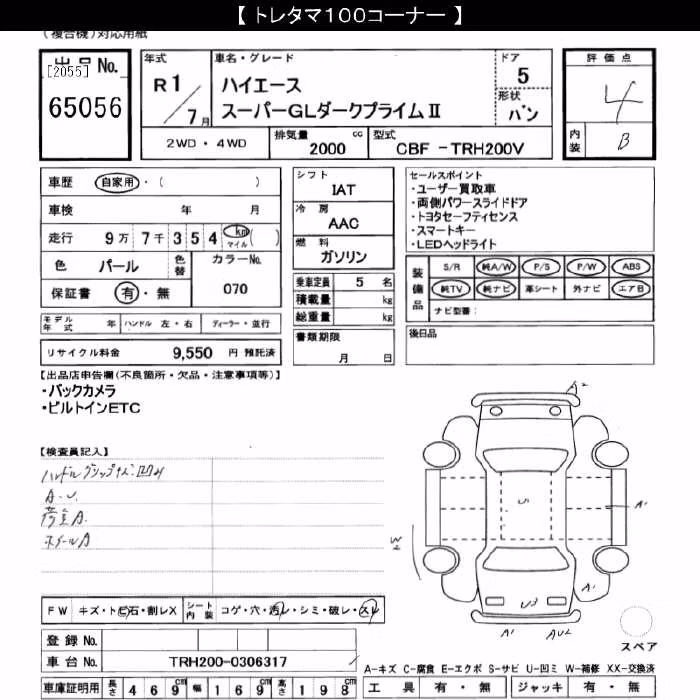 【 トレタマ100コーナー 】
(複合機)対応用紙
出品No.
[2055]
65056
年式
R1/7月
車名・グレード
ハイエース
スーパーGLダークプライムⅡ
ドア
5
形状
バン
評価点
4
内装
B
2WD・4WD
排気量 cc
2000
型式
CBF -TRH200V
車歴 自家用・( )
車検 年 月
走行 9万7千354 km マイル ( )
色 パール 色替 カラーNo.
保証書 有・無 070
モデル年式 年 ハンドル 左・右 ディーラー・並行
リサイクル料金 9,550 円 預託済
シフト
IAT
冷房
AAC
燃料
ガソリン
乗車定員 5 名
積載量 kg
総重量 kg
書類期限
月 日
セールスポイント
・ユーザー買取車
・両側パワースライドドア
・トヨタセーフティセンス
・スマートキー
・LEDヘッドライト
装備品
S/R 純A/W P/S P/W ABS
純TV 純ナビ 革シート 外ナビ エアB
ナビ型番:
後日品
【出品店申告欄(不良箇所・欠品・注意事項等)】
・バックカメラ
・ビルトインETC
【検査員記入】
ハンドルグリップキズ凹み
A.U.
荷室A.
ホイールA
A2
U1
A1
W2
A1
U3
A1
AU2
スペア
FW キズ・ト ビ石・割レX シート内装 コゲ・穴・汚レ・シミ・破レ・スレ
登録No.
車台No. TRH200-0306317
車庫証明用 長さ 469cm 幅 169cm 高さ 198cm
A-キズ C-腐食 E-エクボ S-サビ U-凹ミ W-補修 XX-交換済
工具 有・無 ジャッキ 有・無